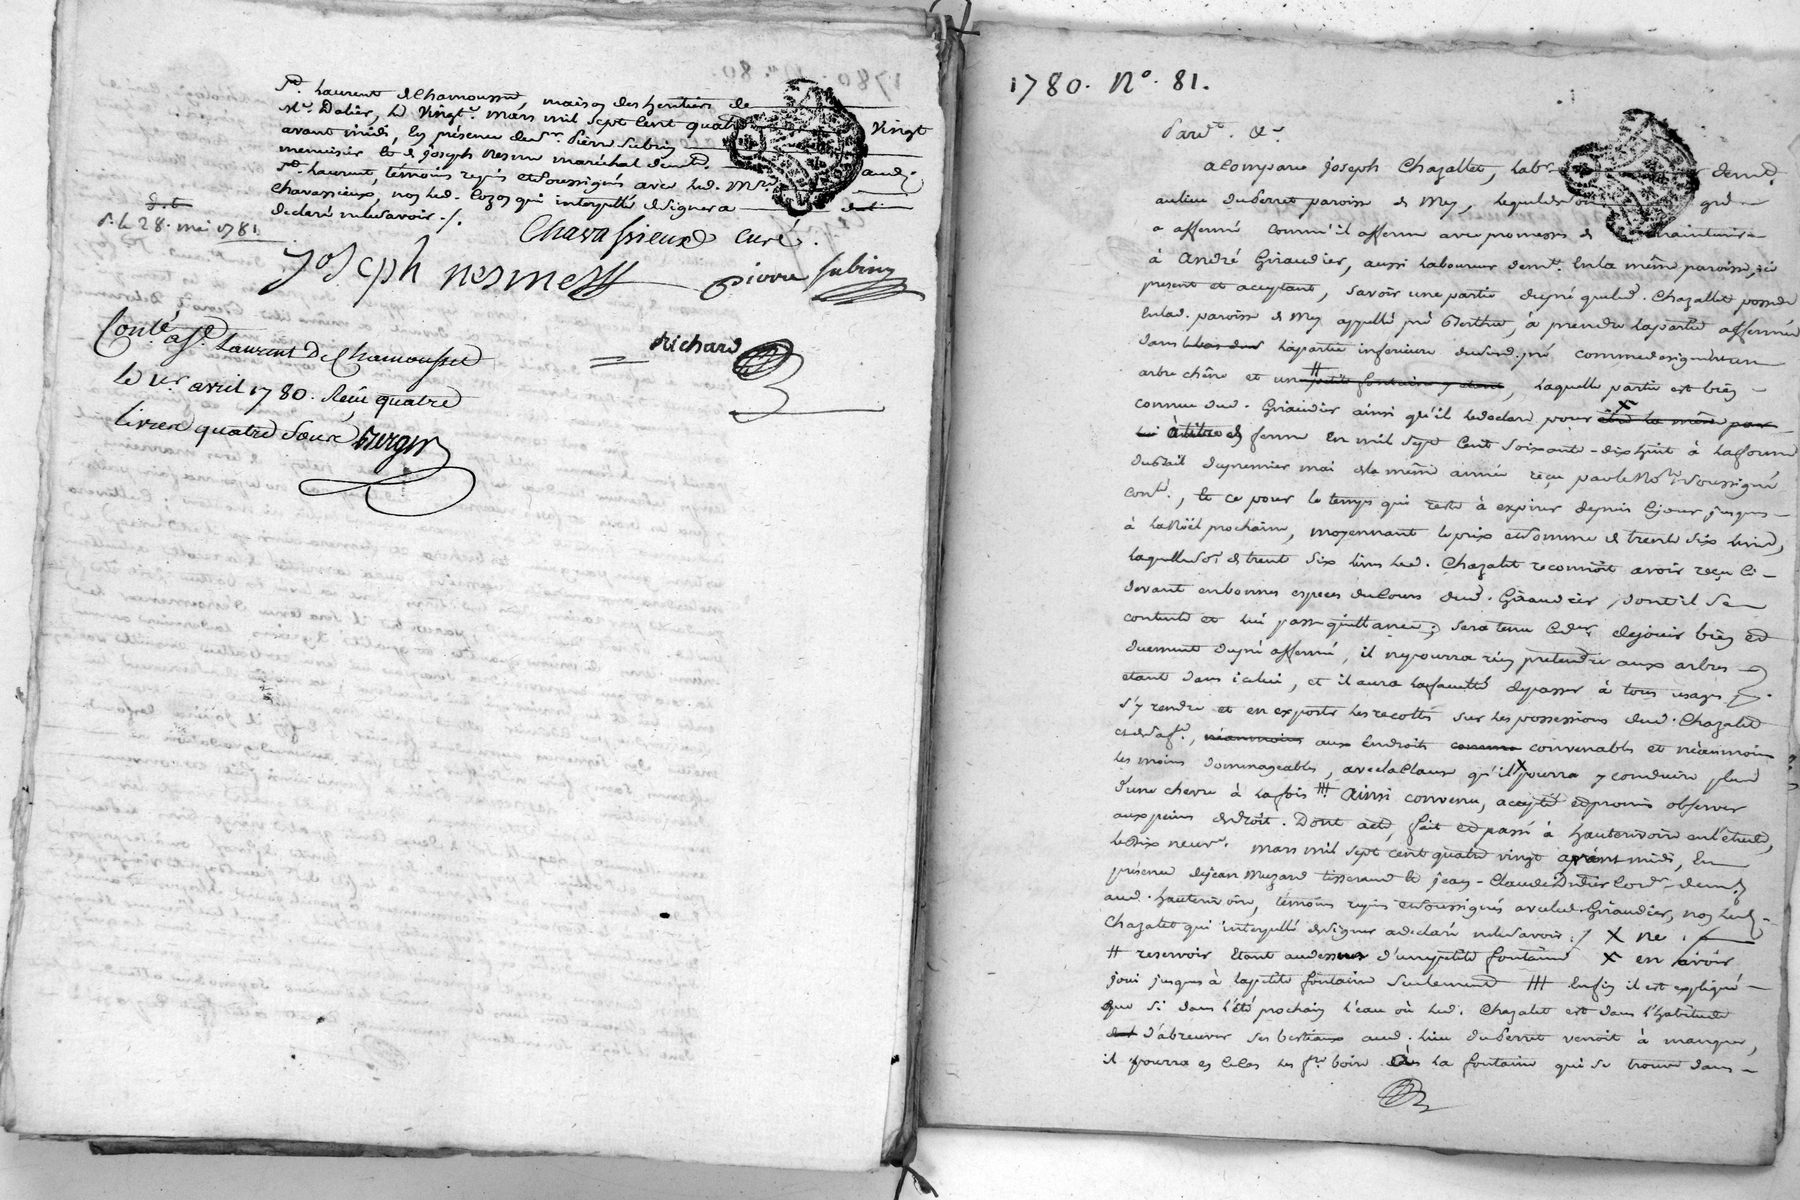 St. Laurent de Chamousset, maison des heritiers de
Mr. Dalier, le vingt. mars mil sept cent quatre vingt
avant midi, En présence de sr. Pierre Subrin
menuisier et de joseph nesme maréchal demt. aud.
St. Laurent, témoins requis et soussignés avec led. Mre.
Chavassieux, non led. Cozon qui interpellé de signer a
declaré ne le savoir ./.
d. t.
s. le 28. mai 1781.
Chavassieux curé.
joseph nesme
pierre subrin
Richard
Conlé. à St. Laurent De Chamousset
le 1er. avril 1780. Reçu quatre
livres quatre sous
1780. N°. 81.
Pardt. &c
a Comparu joseph Chazallet, labr. demt.
au lieu du Serret paroisse de Mey, lequel de son gré
a affermé comm'il afferme avec promesses de maintenir
à André Giraudier, aussi laboureur demt. En la même paroisse, ici
present et acceptant, savoir une partie du pré que led. Chazallet possede
En lad. paroisse de Mey appellé pré Berthu, à prendre la partie affermée
dans la partie inferieure dud. pré comme designée un
arbre chêne et un # petite fontaine y etant, laquelle partie est bien
connue dud. Giraudier ainsi qu'il le declare pour X
a titre de ferme En mil sept Cent soixante-dix huit à la forme
du bail du premier mai de la même année reçu par le Nore. soussigné
cont., et ce pour le temps qui reste à expirer depuis ce jour jusques
à la Noël prochaine, moyennant le prix et somme de trente six livres,
laquelle so. de trente six livres led. Chazalet reconnoit avoir reçu ci-
devant en bonnes especes du Cours dud. Giraudier, dont il se
contente et lui passe quittance; sera tenu led. de jouir bien et
duement du pré affermé, il ne pourra rien pretendre aux arbres
etant dans icelui, et il aura la faculté de passer à tous usages
s'y rendre et en exporter les recoltes sur les possessions dud. Chazalet
néanmoins aux Endroits comme convenables et néanmoins
les moins dommageables, avec la Clause qu'il X pourra y conduire plus
d'une chevre à la fois #! Ainsi convenu, accepté et promis observer
aux peines de droit. Dont acte, fait et passé à hauterivoire en l'étude,
le dix neuf. mars mil sept cent quatre vingt après midi, En
présence de jean Muzard tisserand et jean-Claude Didier Cordr. demt.
aud. hauterivoire, témoins requis et soussignés avec led. Giraudier, non led.
Chazalet qui interpellé de signer a declaré ne le savoir ./ X ne .
# reservoir Etant au dessus d'une petite fontaine X en avoir
joui jusques à la petite fontaine seulement #! Enfin il est expliqué
que si dans l'été prochain l'eau où led. Chazalet est dans l'habitude
d'abreuver ses bestiaux aud. lieu du Serret venoit à manquer,
il pourra en ce cas les fre. boire dans la fontaine qui se trouve dans